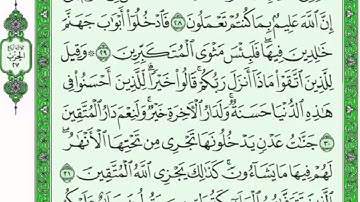 إِنَّ ٱللَّهَ عَلِيمٌۢ بِمَا كُنتُمْ تَعْمَلُونَ ٢٨ فَٱدْخُلُوٓا۟ أَبْوَٰبَ جَهَنَّمَ
خَٰلِدِينَ فِيهَا ۖ فَلَبِئْسَ مَثْوَى ٱلْمُتَكَبِّرِينَ ٢٩ ۞ وَقِيلَ
لِلَّذِينَ ٱتَّقَوْا۟ مَاذَآ أَنزَلَ رَبُّكُمْ ۚ قَالُوا۟ خَيْرًا ۗ لِّلَّذِينَ أَحْسَنُوا۟ فِى
هَٰذِهِ ٱلدُّنْيَا حَسَنَةٌ ۚ وَلَدَارُ ٱلْءَاخِرَةِ خَيْرٌ ۚ وَلَنِعْمَ دَارُ ٱلْمُتَّقِينَ
٣٠ جَنَّٰتُ عَدْنٍ يَدْخُلُونَهَا تَجْرِى مِن تَحْتِهَا ٱلْأَنْهَٰرُ ۖ
لَهُمْ فِيهَا مَا يَشَآءُونَ ۚ كَذَٰلِكَ يَجْزِى ٱللَّهُ ٱلْمُتَّقِينَ ٣١
الحزب
٢٧